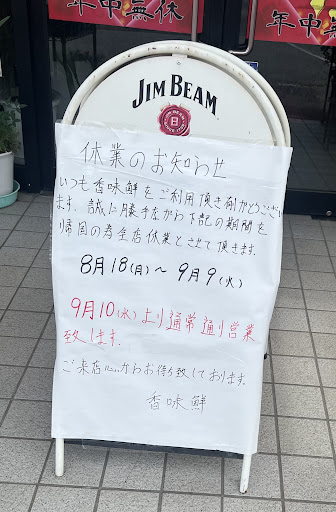 年中無休
年中無
JIM BEAM
休業のお知らせ
いつも香味鮮をご利用頂き有がとうござい
ます。誠に勝手ながら下記の期間を
帰国の為全店休業とさせて頂きます。
8月18(月)〜9月9(火)
9月10(水)より通常通り営業
致します。
ご来店心からお待ち致しております。
香味鮮